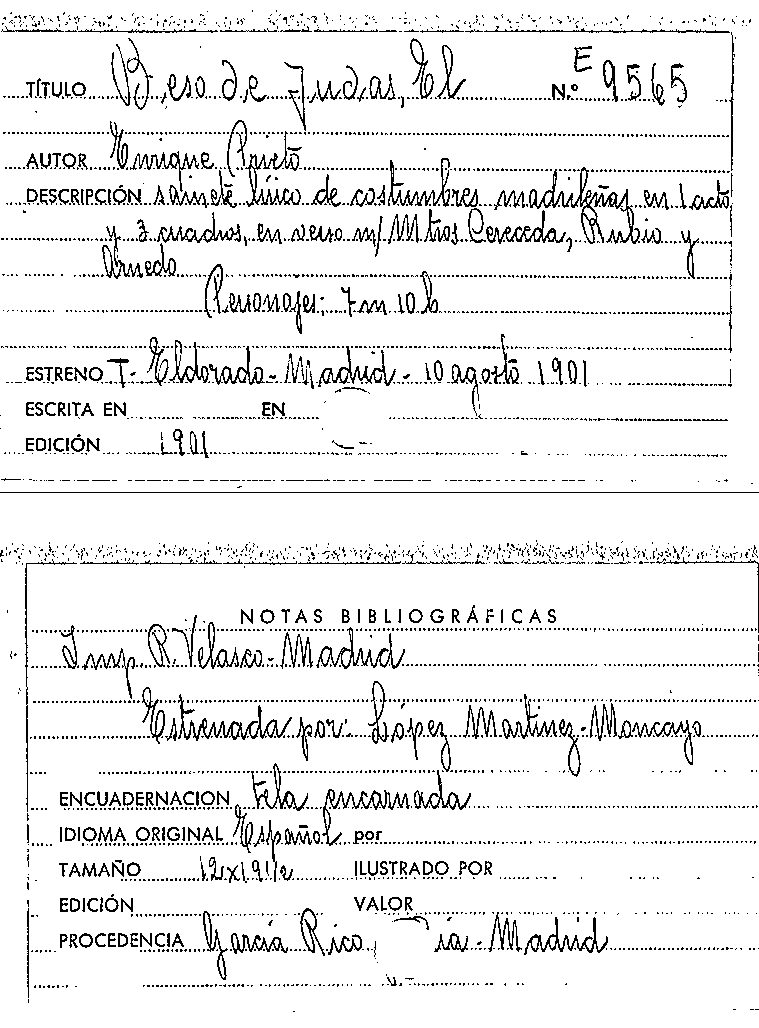 TÍTULO Beso de Judas, El N.º E 9565
AUTOR Enrique Prieto
DESCRIPCIÓN sainete lírico de costumbres madrileñas en 1 acto
y 3 cuadros, en verso m/ Mtros Cereceda, Rubio y
Arnedo
Personajes: 7 m 10 h
ESTRENO T. Eldorado - Madrid - 10 agosto 1901
ESCRITA EN EN
EDICIÓN 1901
NOTAS BIBLIOGRÁFICAS
Imp. R. Velasco - Madrid
Estrenada por: López Martinez - Moncayo
ENCUADERNACION Tela encarnada
IDIOMA ORIGINAL Español por
TAMAÑO 12x19 1/2 ILUSTRADO POR
EDICIÓN VALOR
PROCEDENCIA García Rico, ía - Madrid